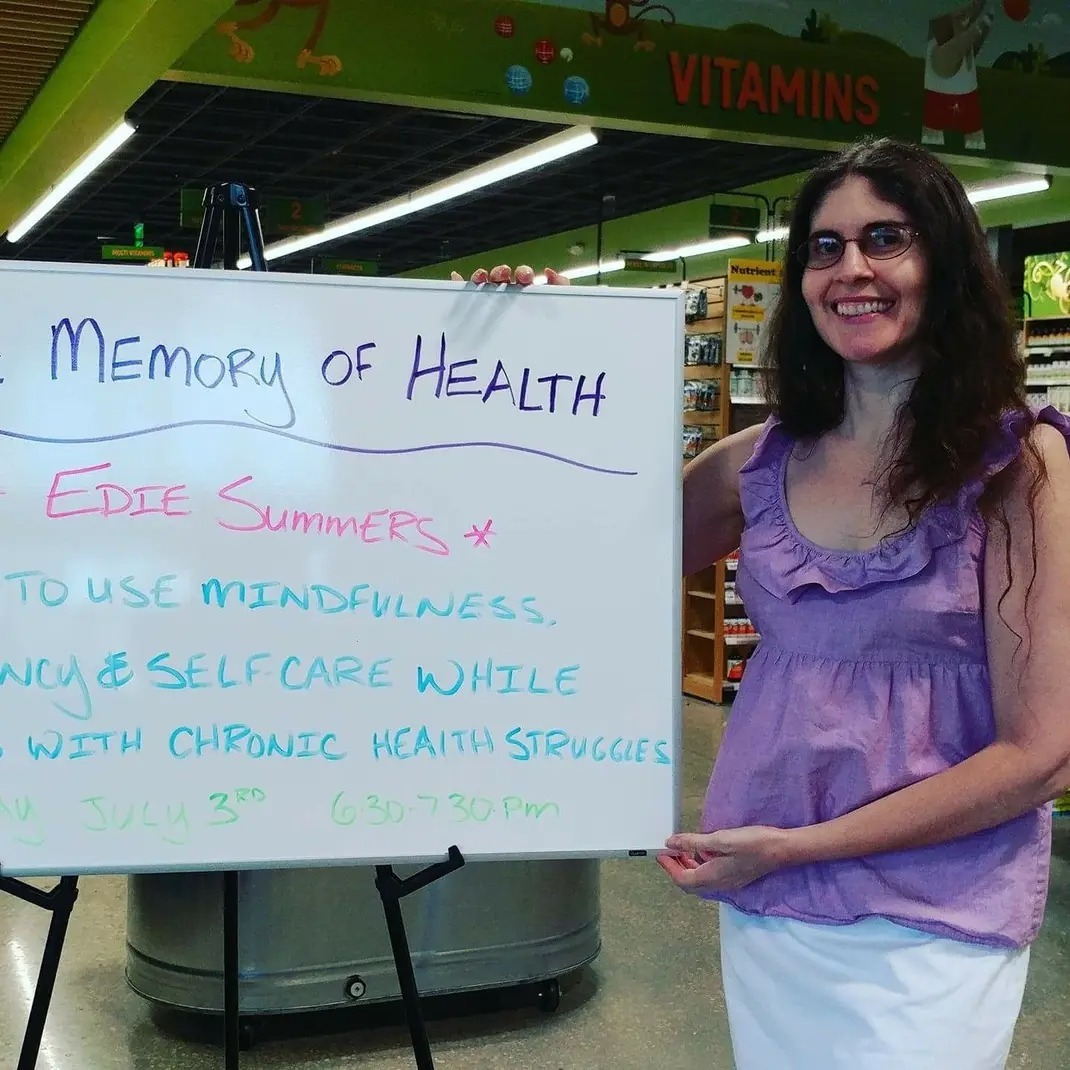 VITAMINS
2
MULTI VITAMINS
Nutrient
MEMORY OF HEALTH
EDIE SUMMERS *
TO USE MINDFULNESS,
NCY & SELF-CARE WHILE
WITH CHRONIC HEALTH STRUGGLES
AY JULY 3RD 6:30-7:30PM